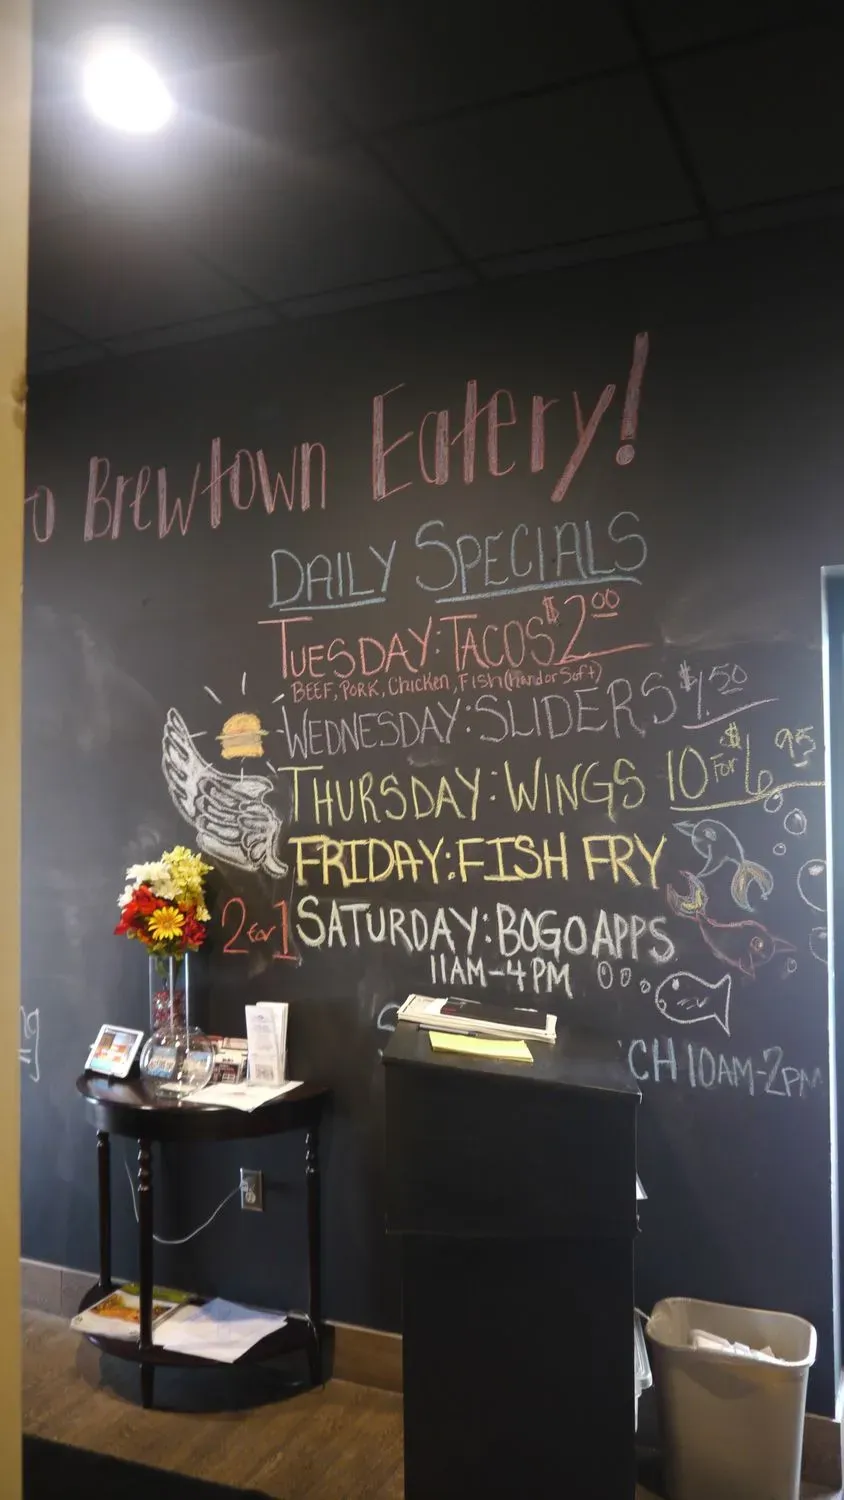 o Brewtown Eatery!
DAILY SPECIALS
TUESDAY: TACOS $2.00
BEEF, PORK, Chicken, Fish (hard or Soft)
WEDNESDAY: SLIDERS $1.50
THURSDAY: WINGS 10 for $6.95
FRIDAY: FISH FRY
2 for 1 SATURDAY: BOGO APPS
11AM-4PM
S CH 10AM-2PM